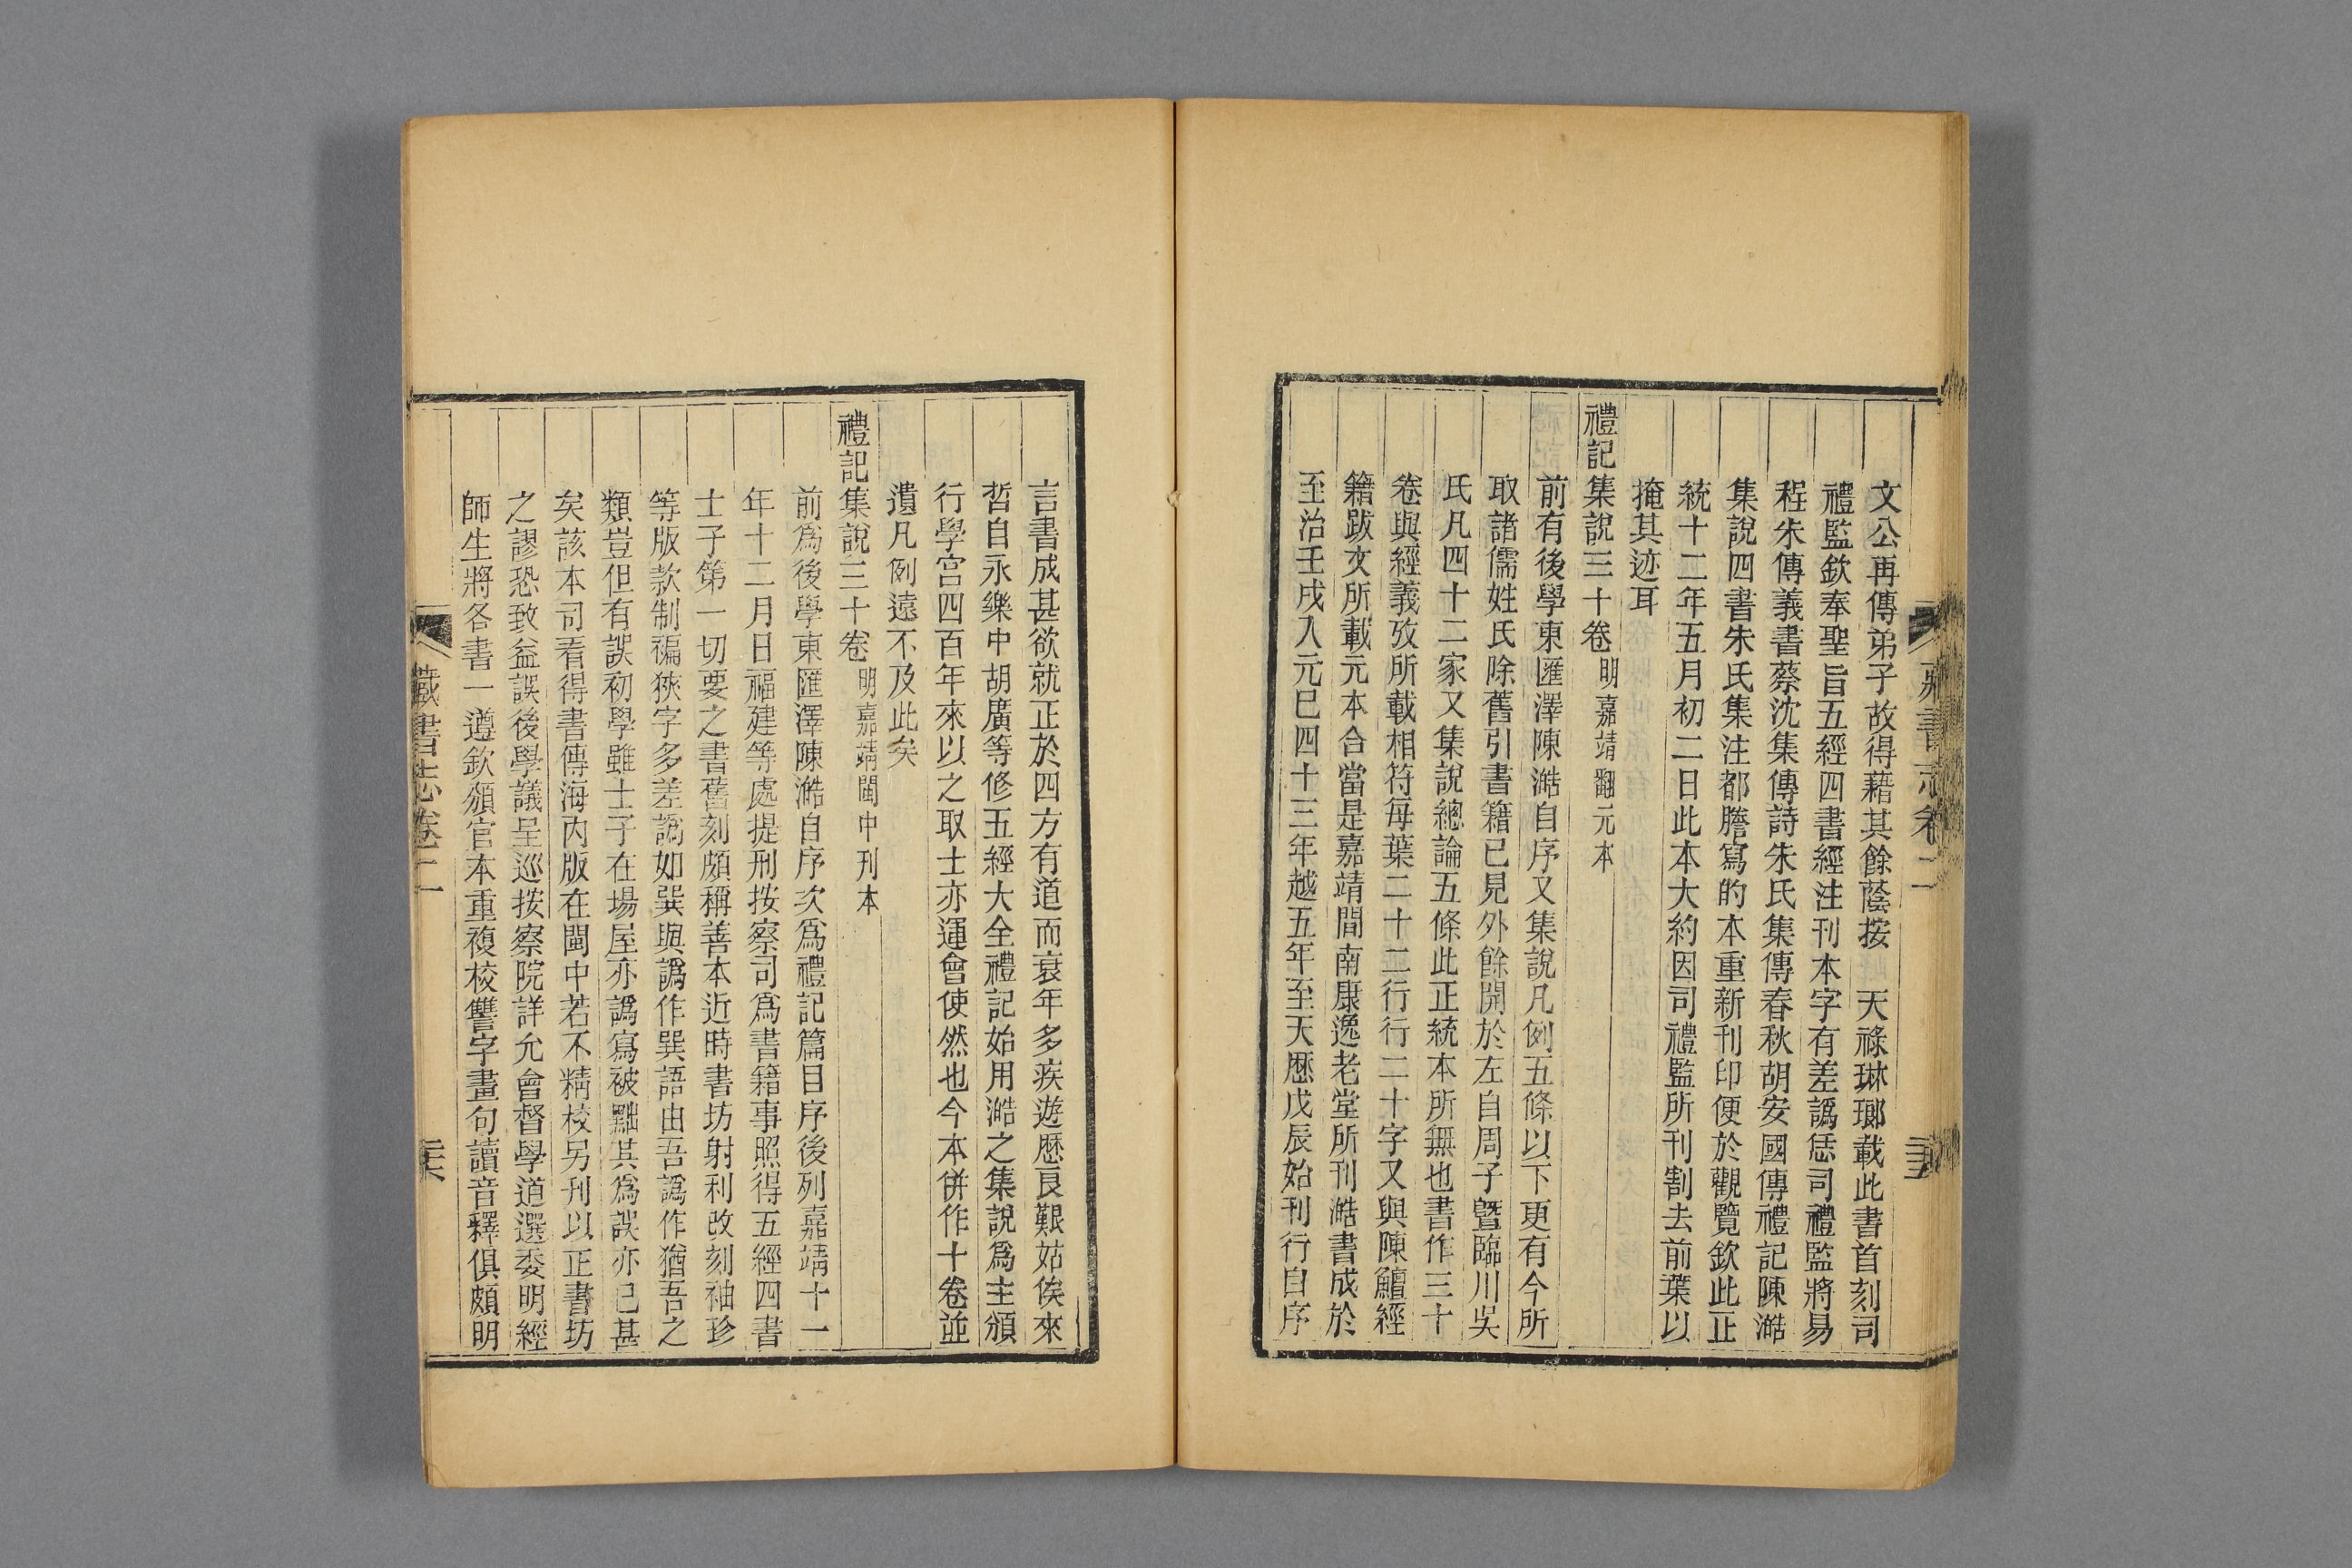 文公再傳弟子故得藉其餘蔭按　天祿琳瑯載此書首刻司
禮監欽奉聖旨五經四書經注刊本字有差譌恁司禮監將易
程朱傳義書蔡沈集傳詩朱氏集傳春秋胡安國傳禮記陳澔
集說四書朱氏集注都謄寫的本重新刊印便於觀覽欽此正
統十二年五月初二日此本大約因司禮監所刊割去前葉以
掩其迹耳
禮記集說三十卷 明嘉靖翻元本
前有後學東匯澤陳澔自序又集說凡例五條以下更有今所
取諸儒姓氏除舊引書籍已見外餘開於左自周子暨臨川吳
氏凡四十二家又集說總論五條此正統本所無也書作三十
卷與經義攷所載相符每葉二十二行行二十字又與陳鱣經
籍跋文所載元本合當是嘉靖間南康逸老堂所刊澔書成於
至治壬戌入元已四十三年越五年至天厯戊辰始刊行自序
言書成甚欲就正於四方有道而衰年多疾遊厯良艱姑俟來
哲自永樂中胡廣等修五經大全禮記始用澔之集說爲主頒
行學宮四百年來以之取士亦運會使然也今本併作十卷並
遺凡例遠不及此矣
禮記集說三十卷 明嘉靖閩中刊本
前爲後學東匯澤陳澔自序次爲禮記篇目序後列嘉靖十一
年十二月日福建等處提刑按察司爲書籍事照得五經四書
士子第一切要之書舊刻頗稱善本近時書坊射利改刻袖珍
等版款制褊狹字多差譌如巽與譌作巽語由吾譌作猶吾之
類豈但有誤初學雖士子在場屋亦譌寫被黜其爲誤亦已甚
矣該本司看得書傳海內版在閩中若不精校另刊以正書坊
之謬恐致益誤後學議呈巡按察院詳允會督學道選委明經
師生將各書一遵欽頒官本重複校讐字畫句讀音釋俱頗明
藏書志卷二